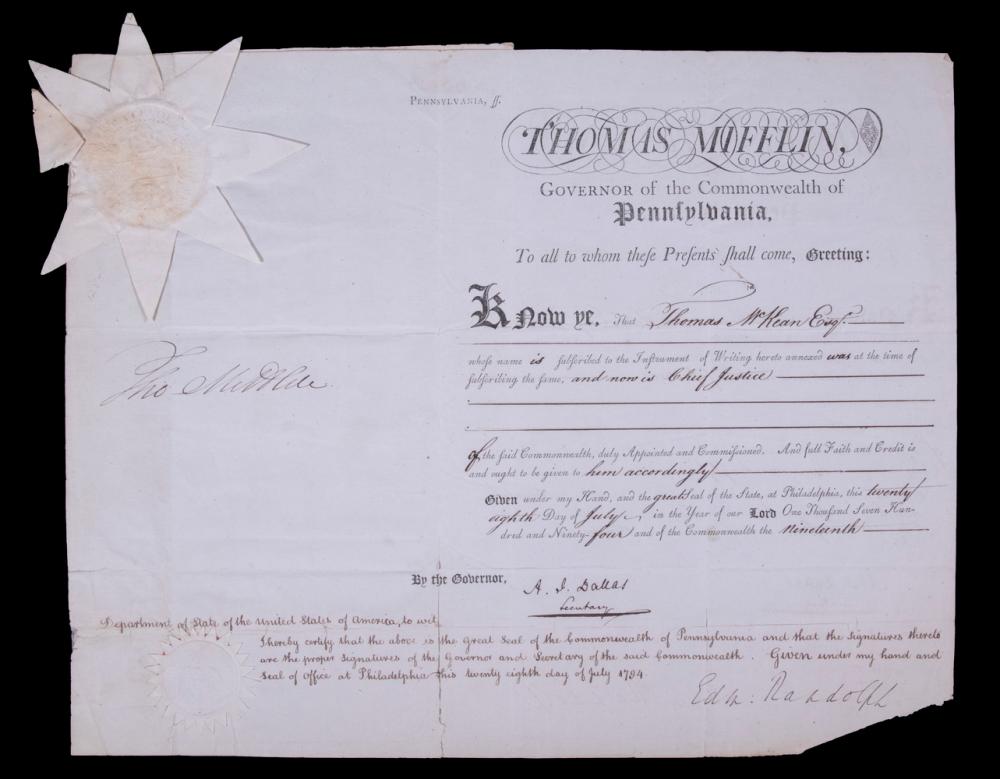 PENNSYLVANIA, ſſ.
THOMAS MIFFLIN,
GOVERNOR of the Commonwealth of
Pennſylvania,
To all to whom theſe Preſents ſhall come, Greeting:
Know ye, That Thomas McKean Esqr.
whoſe name is ſubſcribed to the Inſtrument of Writing hereto annexed was at the time of
ſubſcribing the ſame, and now is Chief Juſtice
of the ſaid Commonwealth, duly Appointed and Commiſſioned. And full Faith and Credit is
and ought to be given to him accordingly
Given under my Hand, and the great Seal of the State, at Philadelphia, this twenty
eighth Day of July, in the Year of our Lord One Thouſand Seven Hun-
dred and Ninety-four and of the Commonwealth the nineteenth
Tho Mifflin
By the Governor,
A. J. Dallas
Secretary
Department of State of the United States of America, to wit,
I hereby certify that the above is the Great Seal of the Commonwealth of Pennsylvania and that the Signatures thereto
are the proper Signatures of the Governor and Secretary of the said Commonwealth. Given under my hand and
Seal of Office at Philadelphia this twenty eighth day of July 1794.
Edm: Randolph